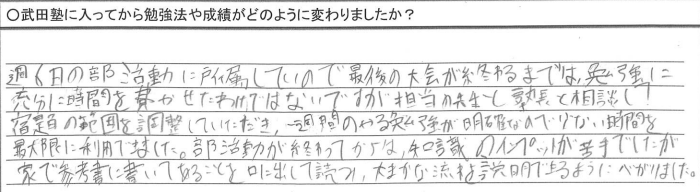 〇武田塾に入ってから勉強法や成績がどのように変わりましたか？
週6日の部活動に所属していたので最後の大会が終わるまでは、勉強に
充分に時間を書かせたわけではないですが担当の先生と塾長と相談し、
宿題の範囲を調整していただき、一週間のやる勉強が明確なので少ない時間を
最大限に利用できました。部活動が終わってからは、知識のインプットが苦手でしたが
家で参考書に書いてあることを口に出して読み、大まかな流れを説明できるように心がけました。